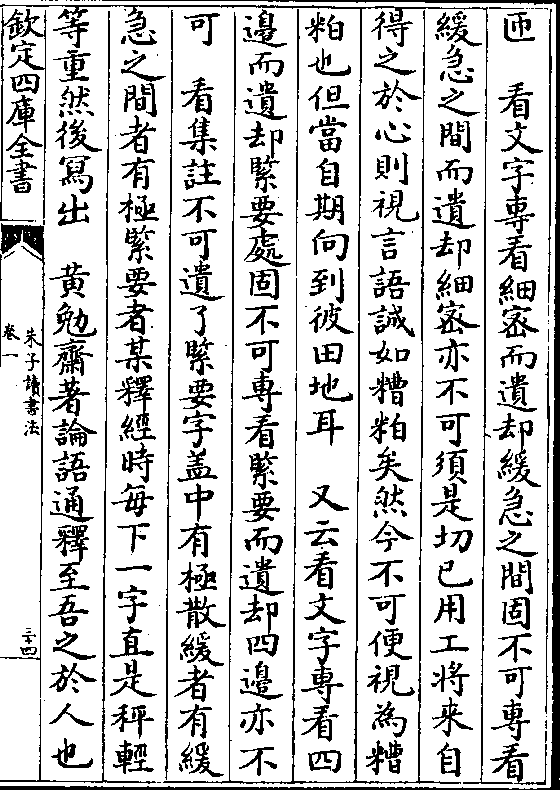 匝　看文字專看細密而遺却緩急之間固不可專看
緩急之間而遺却細密亦不可須是切已用工將來自
得之於心則視言語誠如糟粕矣然今不可便視為糟
粕也但當自期向到彼田地耳　又云看文字專看四
邊而遺却緊要處固不可專看緊要而遺却四邊亦不
可　看集註不可遺了緊要字盖中有極散緩者有緩
急之間者有極緊要者某釋經時每下一字直是秤輕
等重然後寫出　黄勉齋著論語通釋至吾之於人也
欽定四庫全書
朱子讀書法
卷一
三十四